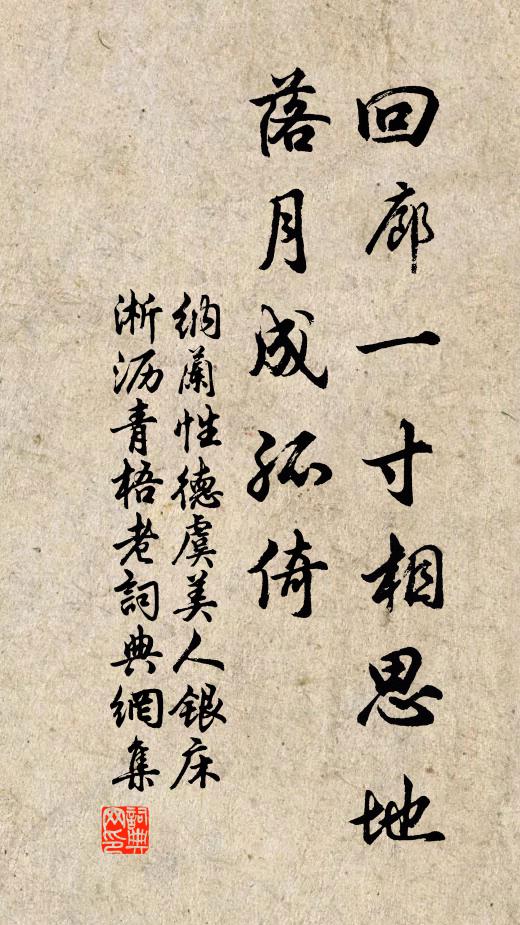 回廊一寸相思地
落月成孤倚
纳蘭性德虞美人银床
淅沥青梧老詞典網集
詞典网印